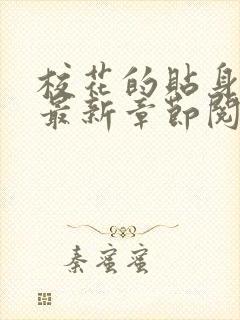 校花的貼身
最新章節閱
秦蜜蜜